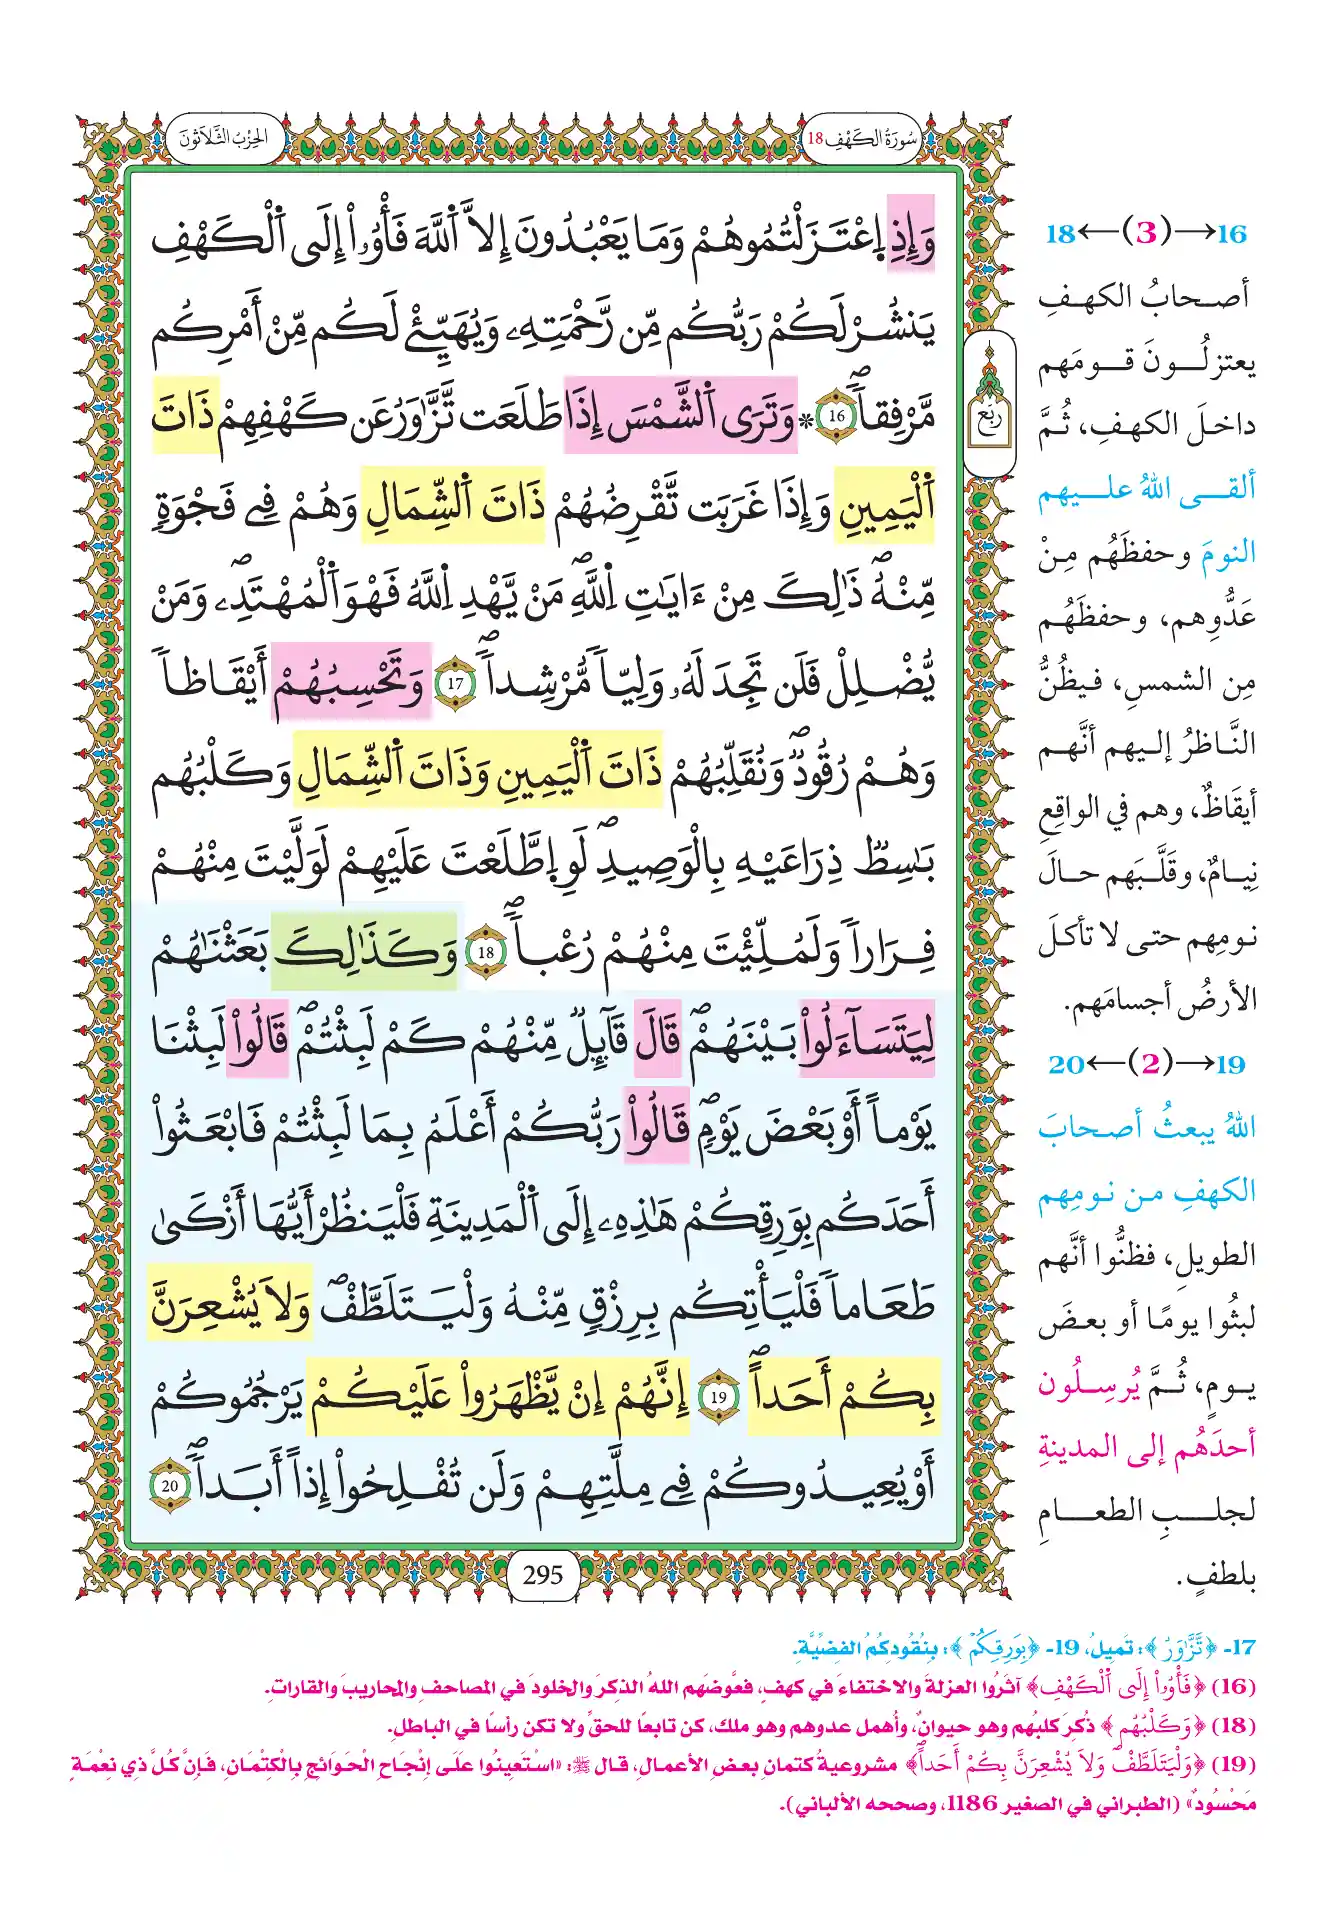 سُورَةُ الكَهْفِ 18
الحِزْبُ الثَّلَاثُونَ
وَإِذِ اِعْتَزَلْتُمُوهُمْ وَمَا يَعْبُدُونَ إِلاَّ اَللَّهَ فَأْوُۥاْ إِلَى اَلْكَهْفِ
يَنشُرْ لَكُمْ رَبُّكُم مِّن رَّحْمَتِهِۦ وَيُهَيِّئْ لَكُم مِّنْ أَمْرِكُم
مَّرْفِقاࣰۖ 16 ۞ وَتَرَى اَلشَّمْسَ إِذَا طَلَعَت تَّزَّٰوَرُ عَن كَهْفِهِمْ ذَاتَ
اَلْيَمِينِ وَإِذَا غَرَبَت تَّقْرِضُهُمْ ذَاتَ اَلشِّمَالِ وَهُمْ فِي فَجْوَةٖ
مِّنْهُۖ ذَٰلِكَ مِنْ ءَايَٰتِ اِللَّهِۖ مَنْ يَّهْدِ اِللَّهُ فَهْوَ اَلْمُهْتَدِۦۖ وَمَنْ
يُّضْلِلْ فَلَن تَجِدَ لَهُۥ وَلِيّاࣰ مُّرْشِداࣰۖ 17 وَتَحْسِبُهُمْ أَيْقَاظاࣰ
وَهُمْ رُقُودٞۖ وَنُقَلِّبُهُمْ ذَاتَ اَلْيَمِينِ وَذَاتَ اَلشِّمَالِ وَكَلْبُهُم
بَٰسِطٞ ذِرَاعَيْهِ بِالْوَصِيدِۖ لَوِ اِطَّلَعْتَ عَلَيْهِمْ لَوَلَّيْتَ مِنْهُمْ
فِرَاراࣰ وَلَمُلِّئْتَ مِنْهُمْ رُعْباࣰۖ 18 وَكَذَٰلِكَ بَعَثْنَٰهُمْ
لِيَتَسَآءَلُواْ بَيْنَهُمْۖ قَالَ قَآئِلٞ مِّنْهُمْ كَمْ لَبِثْتُمْۖ قَالُواْ لَبِثْنَا
يَوْماً أَوْ بَعْضَ يَوْمٖۖ قَالُواْ رَبُّكُمْ أَعْلَمُ بِمَا لَبِثْتُمْ فَابْعَثُواْ
أَحَدَكُم بِوَرِقِكُمْ هَٰذِهِۦ إِلَى اَلْمَدِينَةِ فَلْيَنظُرْ أَيُّهَا أَزْكَىٰ
طَعَاماࣰ فَلْيَأْتِكُم بِرِزْقٖ مِّنْهُ وَلْيَتَلَطَّفْۖ وَلاَ يُشْعِرَنَّ
بِكُمْ أَحَداًۖ 19 إِنَّهُمْ إِنْ يَّظْهَرُواْ عَلَيْكُمْ يَرْجُمُوكُمْ
أَوْ يُعِيدُوكُمْ فِي مِلَّتِهِمْ وَلَن تُفْلِحُواْ إِذاً أَبَداࣰۖ 20
ربع
295
16→(3)←18
أصحابُ الكهفِ
يعتزلُونَ قومَهم
داخلَ الكهفِ، ثُمَّ
ألقى اللهُ عليهم
النومَ وحفظَهُم مِنْ
عَدُّوِهم، وحفظَهُم
مِن الشمسِ، فيظُنُّ
النَّاظرُ إليهم أنَّهم
أيقَاظٌ، وهم في الواقِعِ
نِيامٌ، وقَلَّبَهم حالَ
نومِهم حتى لا تأكلَ
الأرضُ أجسامَهم.
19→(2)←20
اللهُ يبعثُ أصحابَ
الكهفِ من نومِهم
الطويلِ، فظنُّوا أنَّهم
لبثُوا يومًا أو بعضَ
يومٍ، ثُمَّ يُرسِلُون
أحدَهُم إلى المدينةِ
لجلبِ الطعامِ
بلطفٍ.
17- ﴿تَّزَّٰوَرُ﴾: تَمِيلُ، 19- ﴿بِوَرِقِكُمْ﴾: بِنُقُودِكُمُ الفِضِّيَّةِ.
(16) ﴿فَأْوُۥاْ إِلَى اَلْكَهْفِ﴾ آثَرُوا العزلةَ والاختفاءَ في كهفٍ، فعَّوضَهم اللهُ الذكرَ والخلودَ في المصاحفِ والمحاريبِ والقاراتِ.
(18) ﴿وَكَلْبُهُم﴾ ذُكِرَ كلبُهم وهو حيوانٌ، وأُهمل عدوهم وهو ملك، كن تابعًا للحقِّ ولا تكن رأسًا في الباطلِ.
(19) ﴿وَلْيَتَلَطَّفْۖ وَلاَ يُشْعِرَنَّ بِكُمْ أَحَداًۖ﴾ مشروعيةُ كتمانِ بعضِ الأعمالِ، قال ﷺ: «اسْتَعِينُوا عَلَى إِنْجَاحِ الْحَوَائِجِ بِالْكِتْمَانِ، فَإِنَّ كُلَّ ذِي نِعْمَةٍ
مَحْسُودٌ» (الطبراني في الصغير 1186، وصححه الألباني).